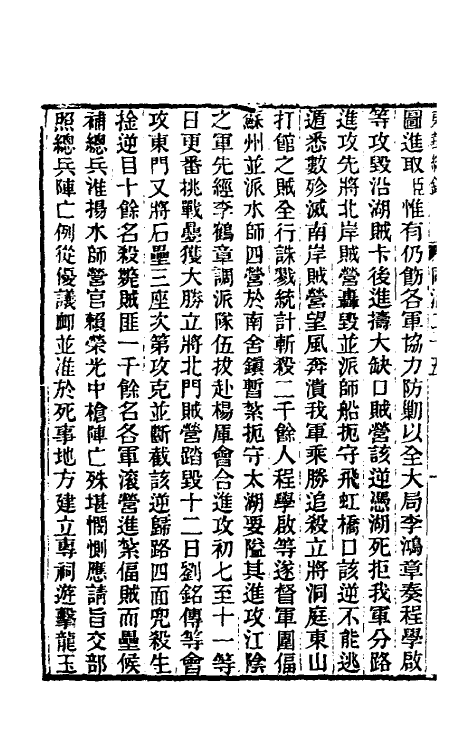 圖進取臣惟有仍飭各軍協力防勦以全大局李鴻章奏程學啟
等攻毀沿湖賊卡後進擣大缺口賊營該逆憑湖死拒我軍分路
進攻先將北岸賊營轟毀並派師船扼守飛虹橋口該逆不能逃
遁悉數殄滅南岸賊營望風奔潰我軍乘勝追殺立將洞庭東山
打館之賊全行誅戮統計斬殺二千餘人程學啟等遂督軍圍偪
蘇州並派水師四營於南舍鎮暫紮扼守太湖要隘其進攻江陰
之軍先經李鶴章調派隊伍拔赴楊厙會合進攻初七至十一等
日更番挑戰疊獲大勝立將北門賊營踏毀十二日劉銘傳等會
攻東門又將石壘三座次第攻克並斷截該逆歸路四面兜殺生
捦逆目十餘名殺斃賊匪一千餘名各軍滾營進紮偪賊而壘候
補總兵淮揚水師營官賴榮光中槍陣亡殊堪憫惻應請旨交部
照總兵陣亡例從優議卹並准於死事地方建立專祠遊擊龍玉